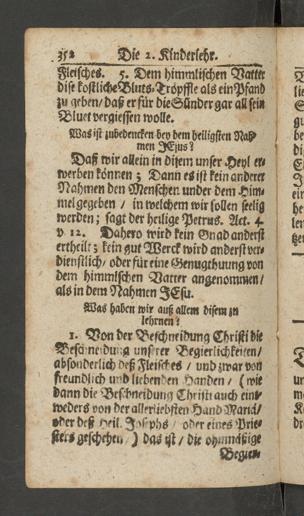 352 Die 2. Kinderlehr.
Fleisches. 5. Dem himmlischen Vatter
dise kostliche Bluts-Tröpffle als ein Pfand
zu geben/ daß er für die Sünder gar all sein
Bluet vergiessen wolle.
Was ist zubedencken bey dem heiligsten Nah-
men JEsus?
Daß wir allein in disem unser Heyl er-
werben können; Dann es ist kein anderer
Nahmen den Menschen under dem Him-
mel gegeben/ in welchem wir sollen seelig
werden; sagt der heilige Petrus. Act. 4.
v. 12. Dahero wird kein Gnad anderst
ertheilt; kein gut Werck wird anderst ver-
dienstlich/ oder für eine Genugthuung von
dem himmlischen Vatter angenommen/
als in dem Nahmen JEsu.
Was haben wir auß allem disem zu
lehrnen?
1. Von der Beschneidung Christi die
Beschneidung unserer Begierlichkeiten/
absonderlich deß Fleisches/ und zwar von
freundlich und liebenden Handen/ (wie
dann die Beschneidung Christi auch eint-
weders von der allerliebsten Hand Mariä/
oder deß Heil. Josephs/ oder eines Prie-
sters geschehen/) das ist/ die ohnmäßige
Begier-